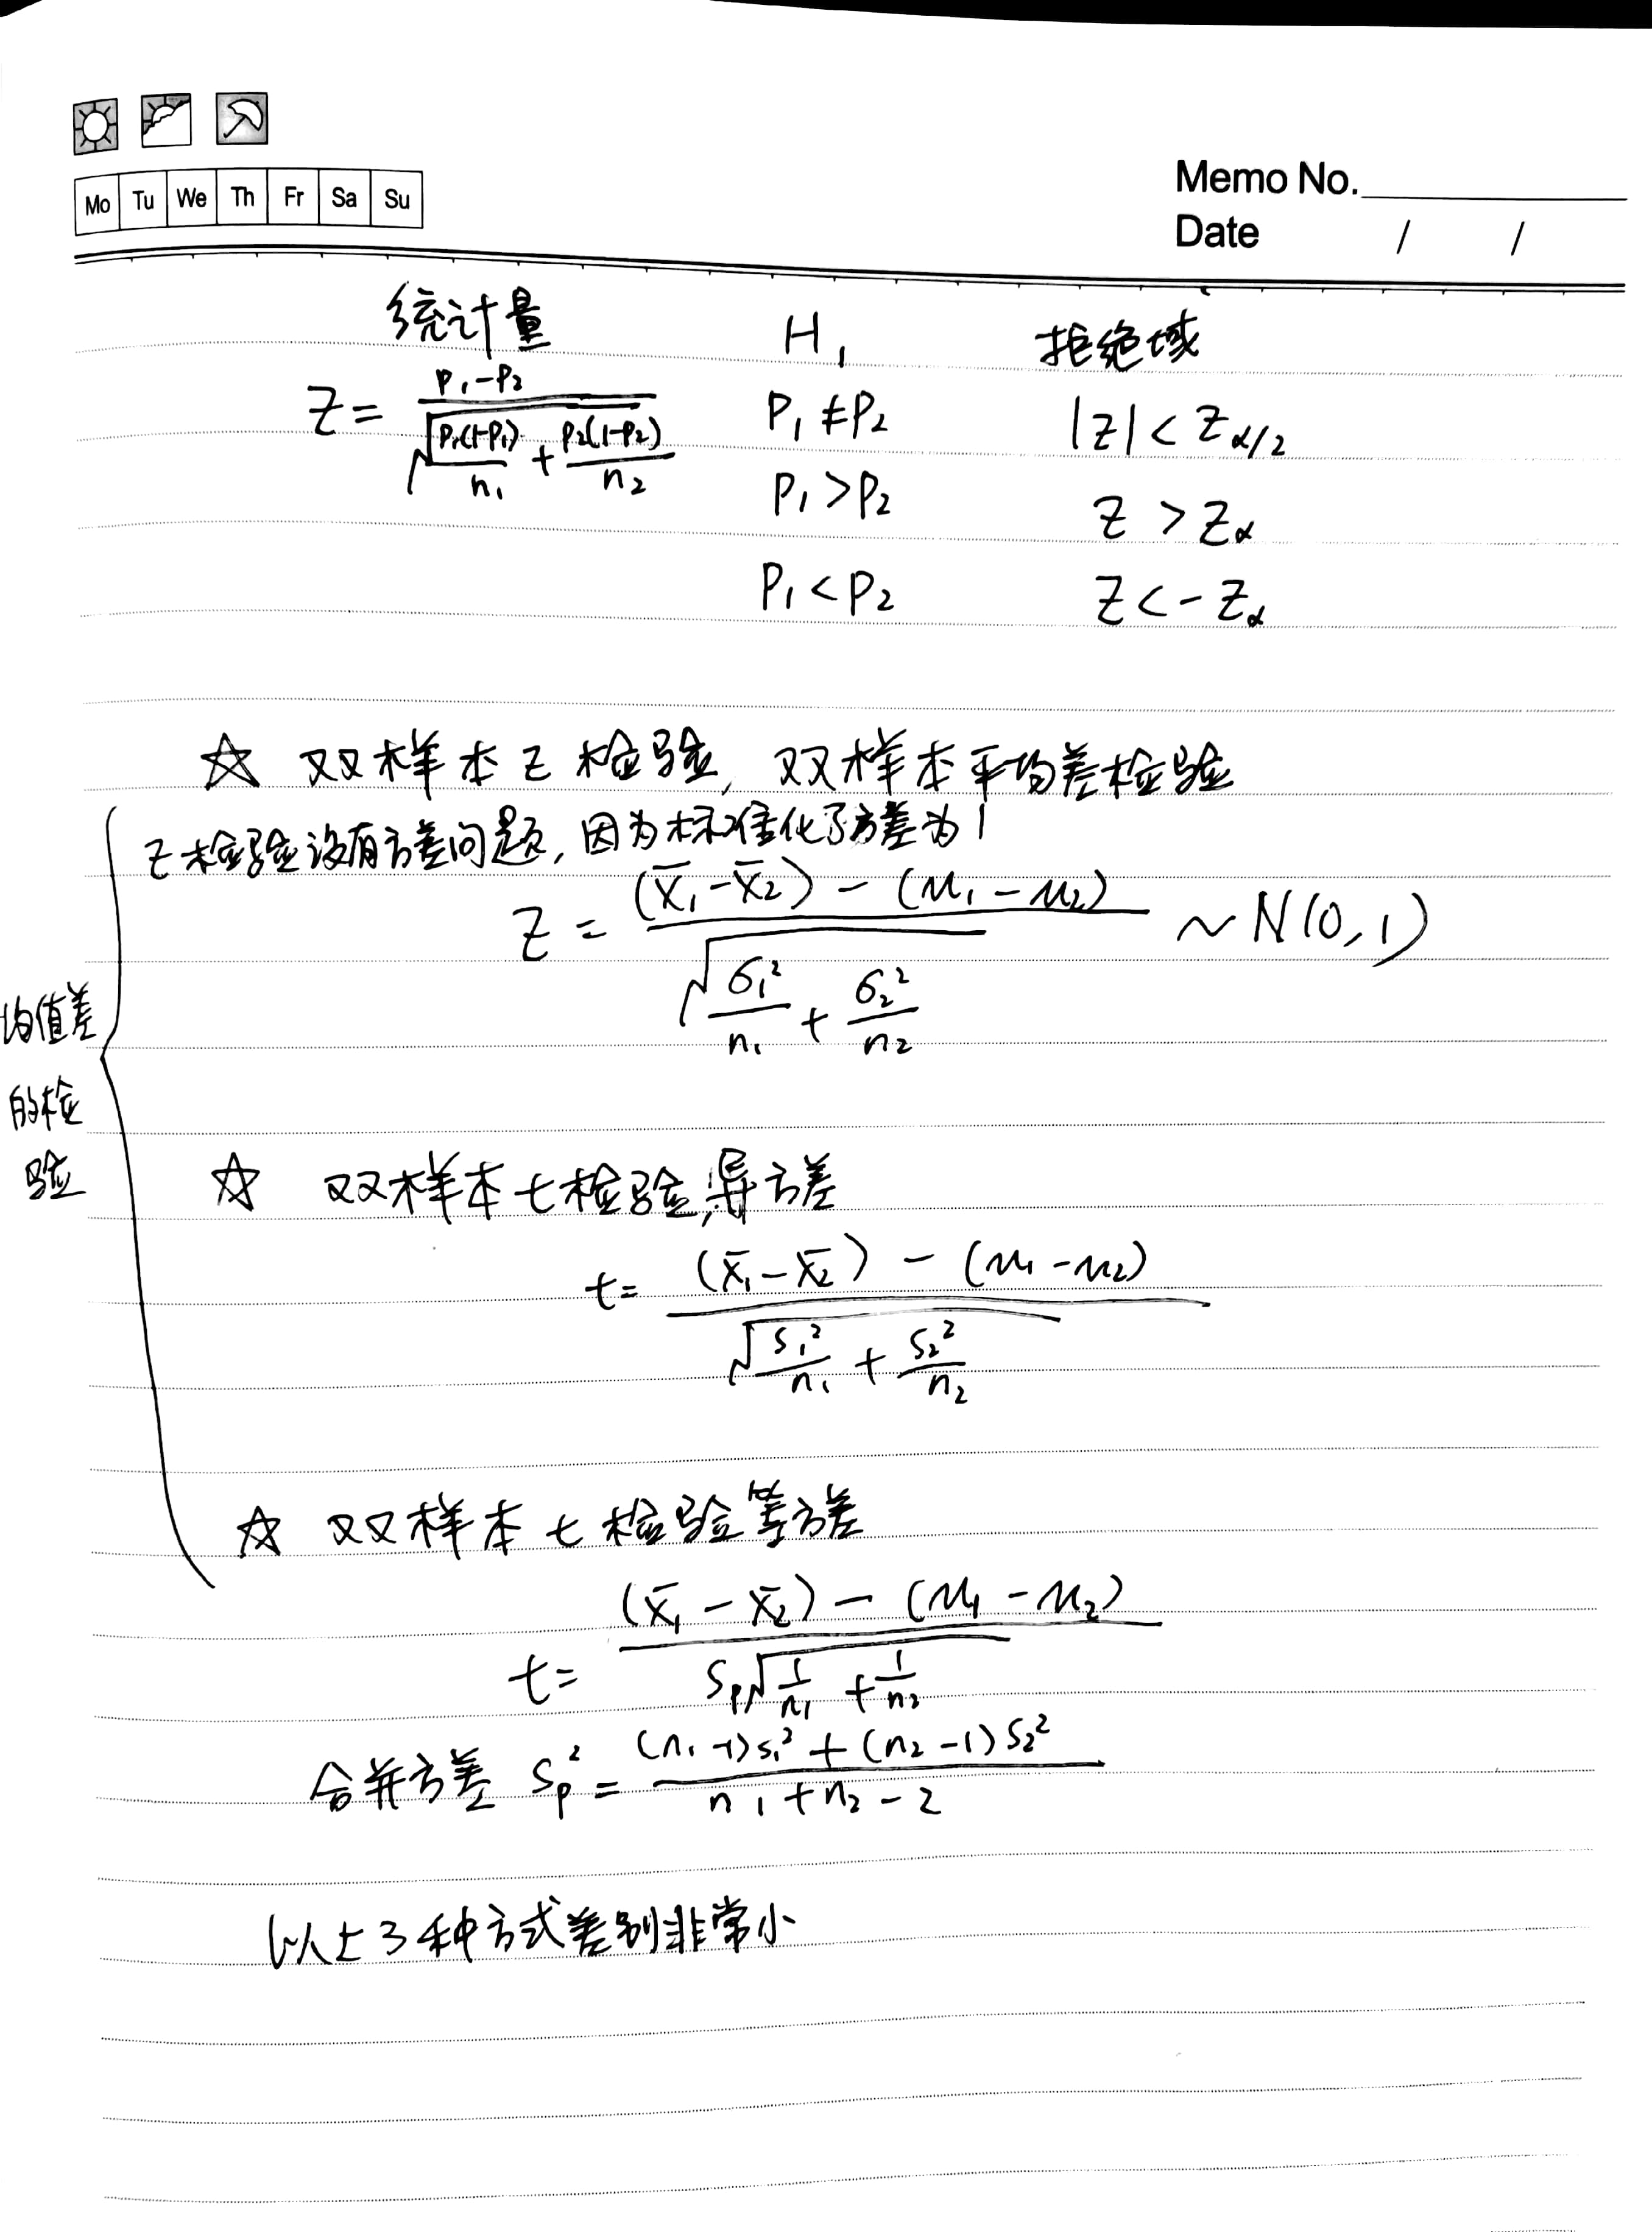 Mo Tu We Th Fr Sa Su
Memo No.
Date / /
统计量 H₁ 拒绝域
Z = (p₁-p₂) / √(p₁(1-p₁)/n₁ + p₂(1-p₂)/n₂) P₁≠P₂ |z| < Z α/2
P₁>P₂ Z > Zα
P₁<P₂ Z < -Zα
☆ 双样本Z检验, 双样本平均差检验
Z检验没有方差问题, 因为标准化了方差为1
Z = ((x̄₁-x̄₂) - (μ₁-μ₂)) / √(σ₁²/n₁ + σ₂²/n₂) ~ N(0,1)
均值差
的检
验
☆ 双样本t检验,异方差
t = ((x̄₁-x̄₂) - (μ₁-μ₂)) / √(s₁²/n₁ + s₂²/n₂)
☆ 双样本t检验等方差
t = ((x̄₁-x̄₂) - (μ₁-μ₂)) / Sp√(1/n₁ + 1/n₂)
合并方差 Sp² = ((n₁-1)s₁² + (n₂-1)s₂²) / (n₁+n₂-2)
以上3种方式差别非常小